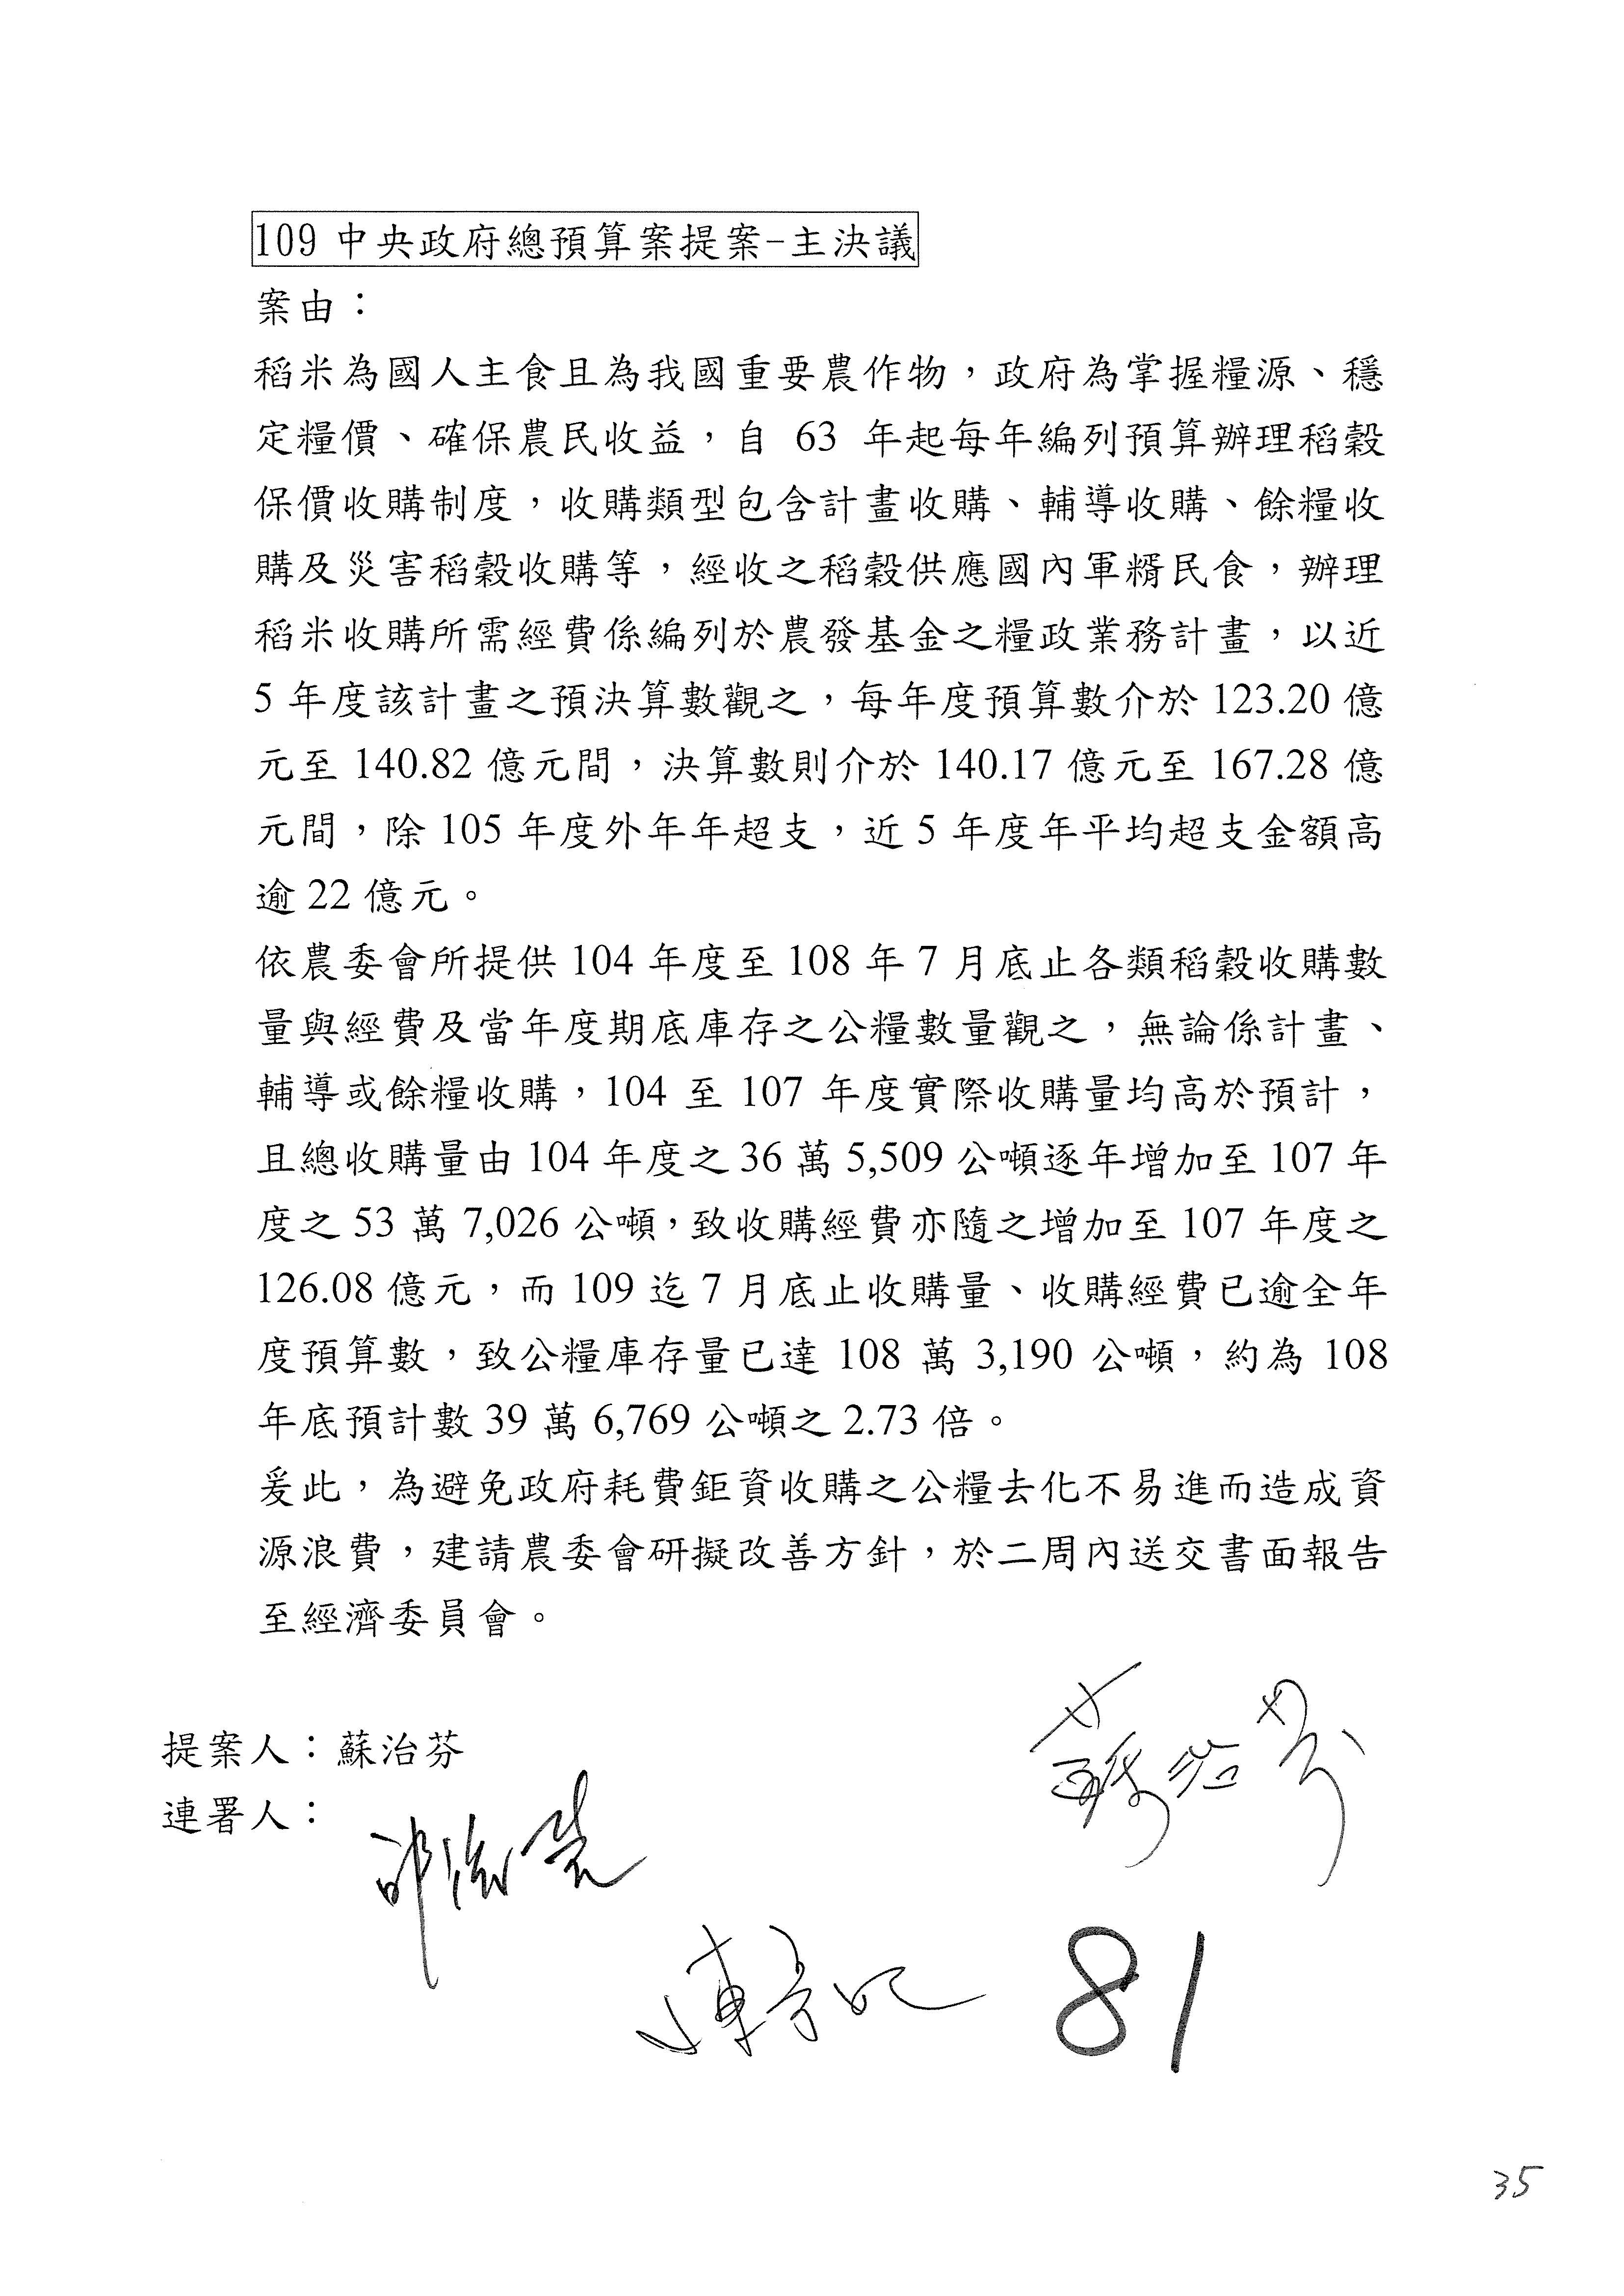 109 中央政府總預算案提案-主決議
案由：
稻米為國人主食且為我國重要農作物，政府為掌握糧源、穩
定糧價、確保農民收益，自 63 年起每年編列預算辦理稻穀
保價收購制度，收購類型包含計畫收購、輔導收購、餘糧收
購及災害稻穀收購等，經收之稻穀供應國內軍糈民食，辦理
稻米收購所需經費係編列於農發基金之糧政業務計畫，以近
5 年度該計畫之預決算數觀之，每年度預算數介於 123.20 億
元至 140.82 億元間，決算數則介於 140.17 億元至 167.28 億
元間，除 105 年度外年年超支，近 5 年度年平均超支金額高
逾 22 億元。
依農委會所提供 104 年度至 108 年 7 月底止各類稻穀收購數
量與經費及當年度期底庫存之公糧數量觀之，無論係計畫、
輔導或餘糧收購，104 至 107 年度實際收購量均高於預計，
且總收購量由 104 年度之 36 萬 5,509 公噸逐年增加至 107 年
度之 53 萬 7,026 公噸，致收購經費亦隨之增加至 107 年度之
126.08 億元，而 109 迄 7 月底止收購量、收購經費已逾全年
度預算數，致公糧庫存量已達 108 萬 3,190 公噸，約為 108
年底預計數 39 萬 6,769 公噸之 2.73 倍。
爰此，為避免政府耗費鉅資收購之公糧去化不易進而造成資
源浪費，建請農委會研擬改善方針，於二周內送交書面報告
至經濟委員會。
提案人：蘇治芬
蘇治芬
連署人：
81
35